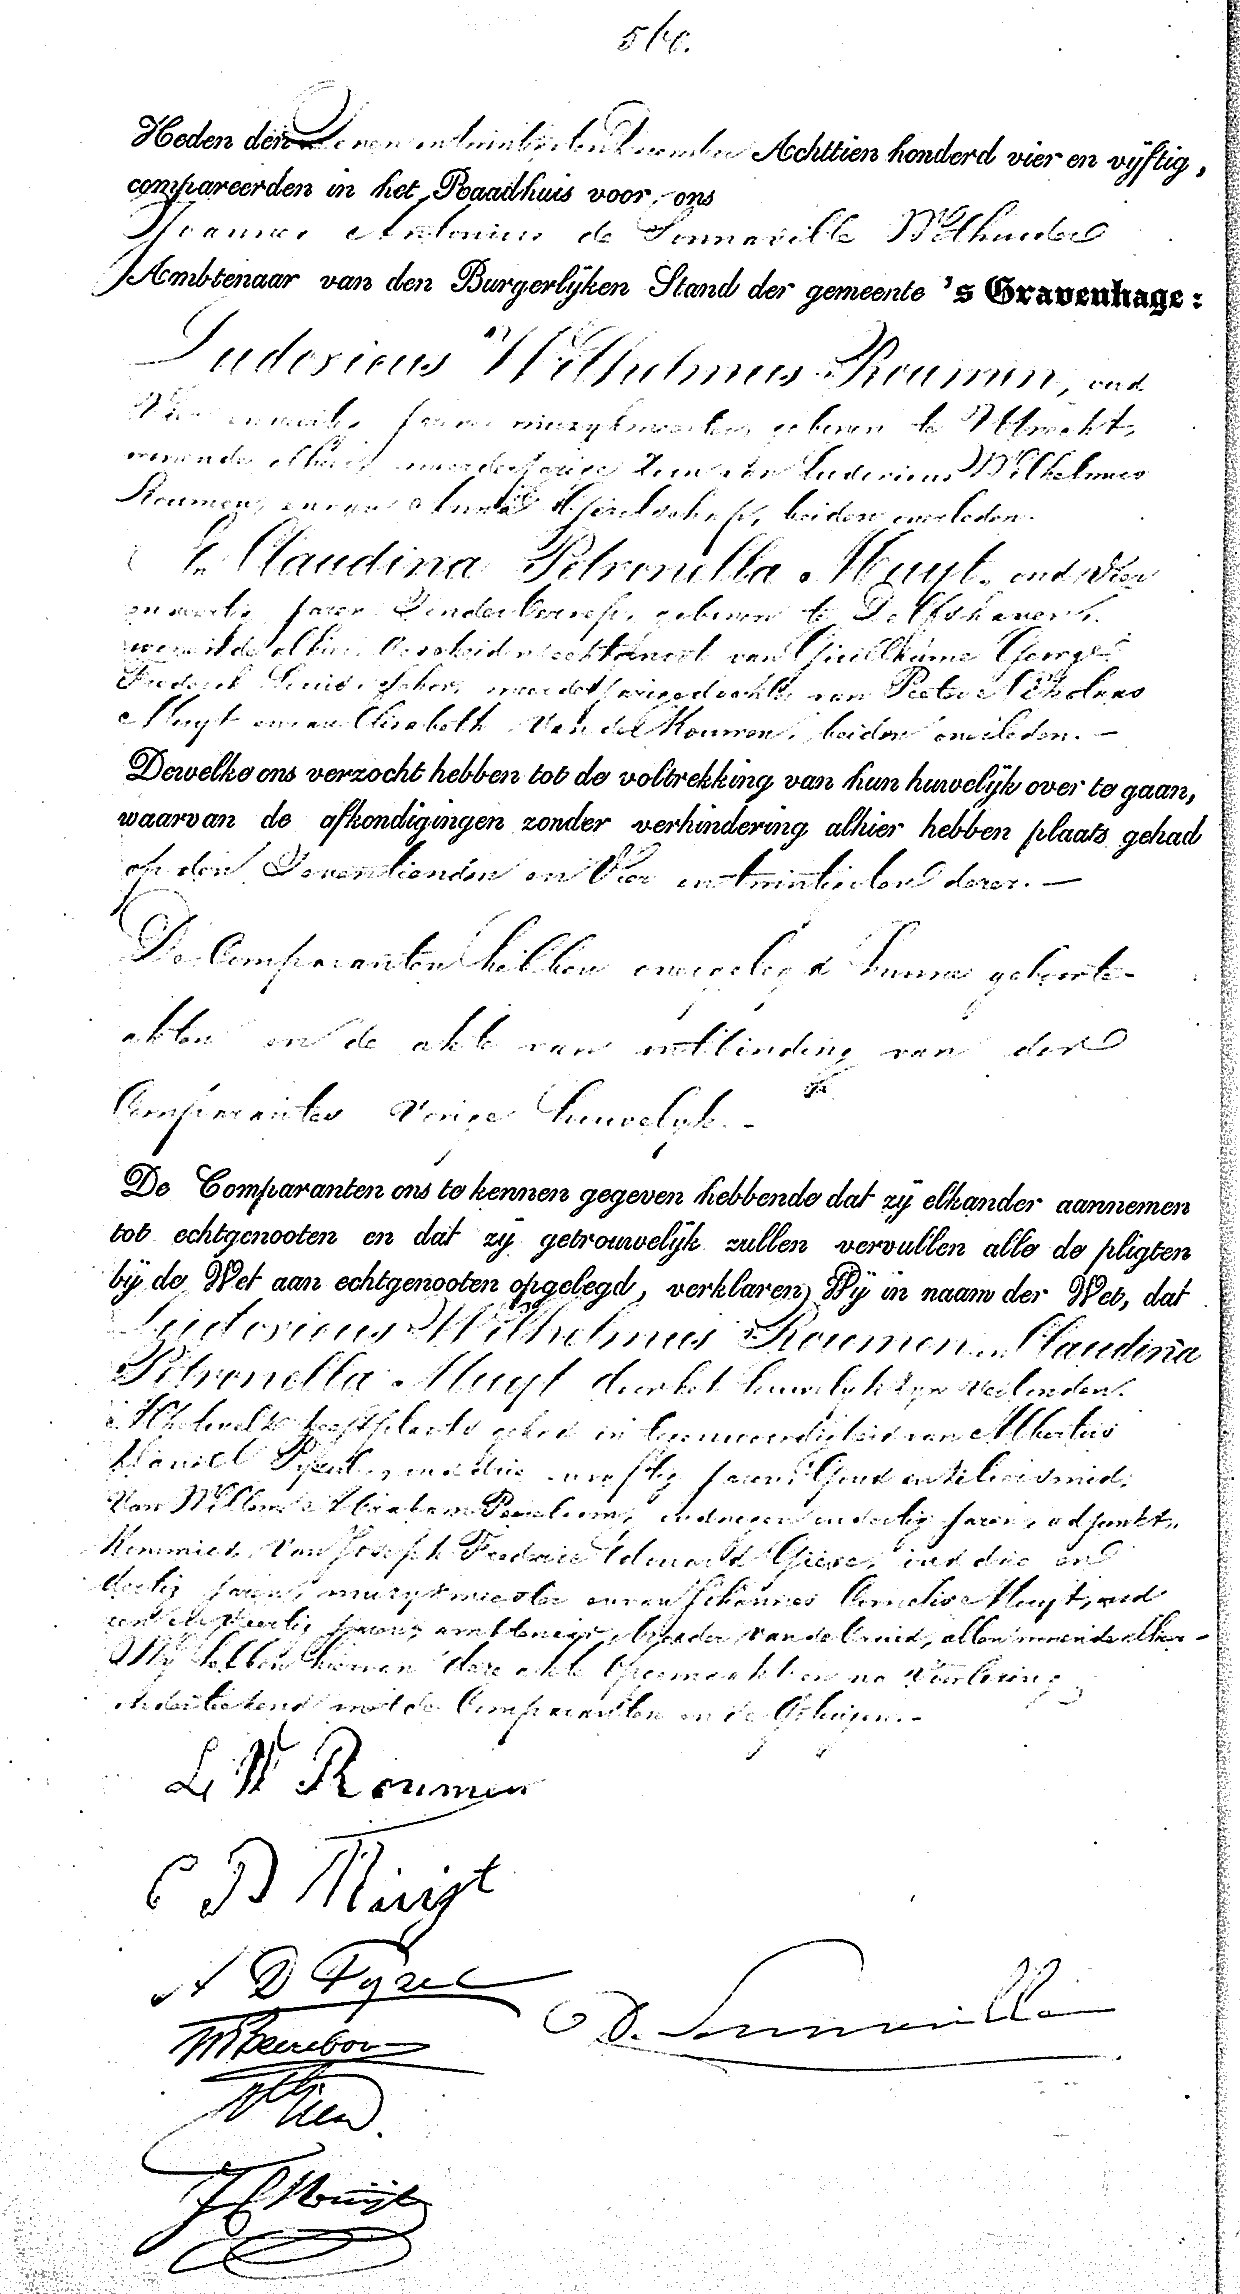 Heden den Zeven en twintigsten December Achttien honderd vier en vijftig,
compareerden in het Raadhuis voor ons
Joannes Antonius de Sonnaville Wethouder
Ambtenaar van den Burgerlijken Stand der gemeente 's Gravenhage:
Ludovicus Wilhelmus Roumen, oud
Vier en veertig jaren muzykmeester, geboren te Utrecht,
wonende alhier meerderjarige zoon van Ludovicus Wilhelmus
Roumen, en van Anna Gerelschap, beiden overleden.
En Claudina Petronella Muyt, oud Vier
en veertig jaren Zonder beroep, geboren te Delfshaven,
wonende alhier Gescheiden echtgenoot van Guillaume George
Frederik Louis, meerderjarige dochter van Pieter Nikolaas
Muyt en van Elisabeth Van der Kouwen, beiden overleden. —
Dewelke ons verzocht hebben tot de voltrekking van hun huwelijk over te gaan,
waarvan de afkondigingen zonder verhindering alhier hebben plaats gehad
op den Zeventienden en Vier en twintigsten dezer. —
De Comparanten hebben overgelegd hunne geboorte-
akten en de akte van ontbinding van der
Comparantes vorige huwelyk. -
De Comparanten ons te kennen gegeven hebbende dat zij elkander aannemen
tot echtgenooten en dat zij getrouwelijk zullen vervullen alle de pligten
bij de Wet aan echtgenooten opgelegd, verklaren Wij in naam der Wet, dat
Ludovicus Wilhelmus Roumen en Claudina
Petronella Muyt door het huwelyk zyn verbonden.
Hetwelk heeft plaats gehad in tegenwoordigheid van Albertus
Daniel oud drie en vyftig jaren, Goud en Zilversmid,
Van Willem Abraham Peereboom, oud negen en dertig jaren, adjunkt.
Kommies, Van Joseph Frederic Edouard Giese, oud drie en
dertig jaren, muzykmeester en van Johannes Cornelis Muyt, oud
een en veertig jaren, ambtenaar, broeder van de bruid, allen wonende alhier -
Wij hebben hiervan deze akte opgemaakt en na voorlezing
onderteekend met de Comparanten en de Getuigen. -
L W Roumen
C P Muijt
A D
WA Peereboom
D. Sonnaville
J C Muijt